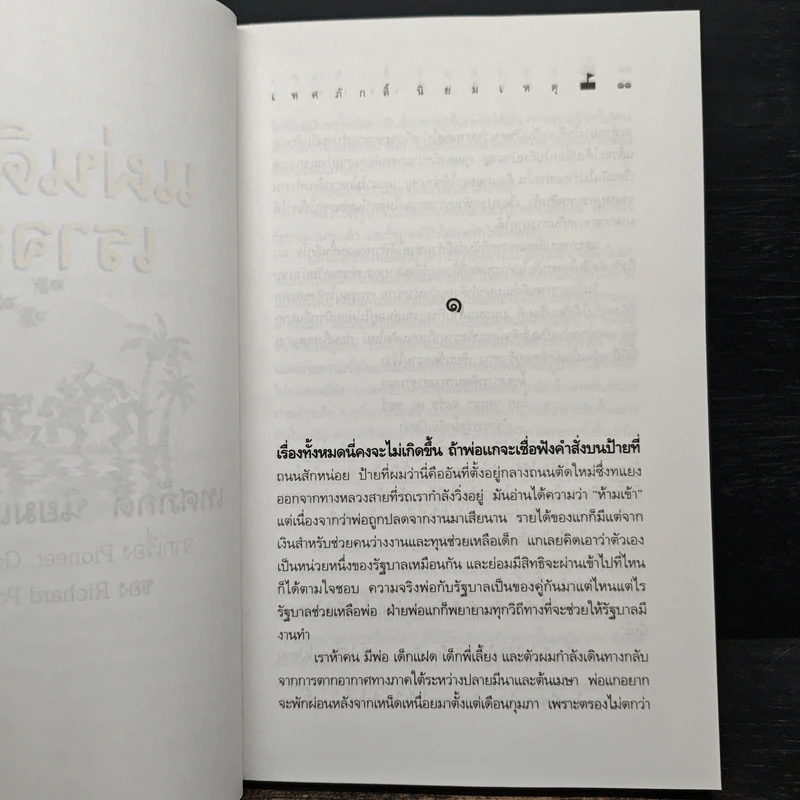 แผ่นดิ
เราจ
เทศภักดิ์ นิยมเ
จากเรื่อง Pioneer, Go
ของ Richard P
เทศภักดิ์ นิยมเหตุ ๑๑
๑
เรื่องทั้งหมดนี่คงจะไม่เกิดขึ้น ถ้าพ่อแกจะเชื่อฟังคำสั่งบนป้ายที่
ถนนสักหน่อย ป้ายที่ผมว่านี่คืออันที่ตั้งอยู่กลางถนนตัดใหม่ซึ่งทแยง
ออกจากทางหลวงสายที่รถเรากำลังวิ่งอยู่ มันอ่านได้ความว่า “ห้ามเข้า”
แต่เนื่องจากว่าพ่อถูกปลดจากงานมาเสียนาน รายได้ของแกก็มีแต่จาก
เงินสำหรับช่วยคนว่างงานและทุนช่วยเหลือเด็ก แกเลยคิดเอาว่าตัวเอง
เป็นหน่วยหนึ่งของรัฐบาลเหมือนกัน และย่อมมีสิทธิจะผ่านเข้าไปที่ไหน
ก็ได้ตามใจชอบ ความจริงพ่อกับรัฐบาลเป็นของคู่กันมาแต่ไหนแต่ไร
รัฐบาลช่วยเหลือพ่อ ฝ่ายพ่อแกก็พยายามทุกวิถีทางที่จะช่วยให้รัฐบาลมี
งานทำ
เราห้าคน มีพ่อ เด็กแฝด เด็กพี่เลี้ยง และตัวผมกำลังเดินทางกลับ
จากการตากอากาศทางภาคใต้ระหว่างปลายมีนาและต้นเมษา พ่อแกอยาก
จะพักผ่อนหลังจากเหน็ดเหนื่อยมาตั้งแต่เดือนกุมภา เพราะตรองไม่ตกว่า